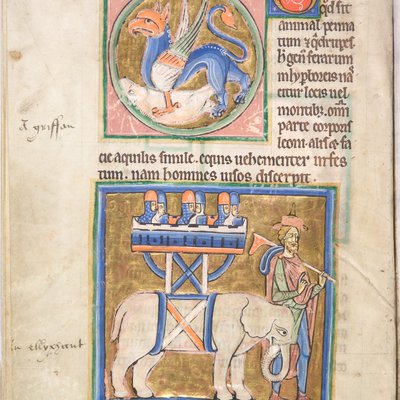 qd sit
animal penna
tum & qdrupes
h' gen' ferarum
in hyperboreis na
citur locis uel
montib; omi
parte corporis
leoni. alis & fa
cie aquilis simile. equis uehementer infes
tum. nam homines uisos discerpit.
A griffan